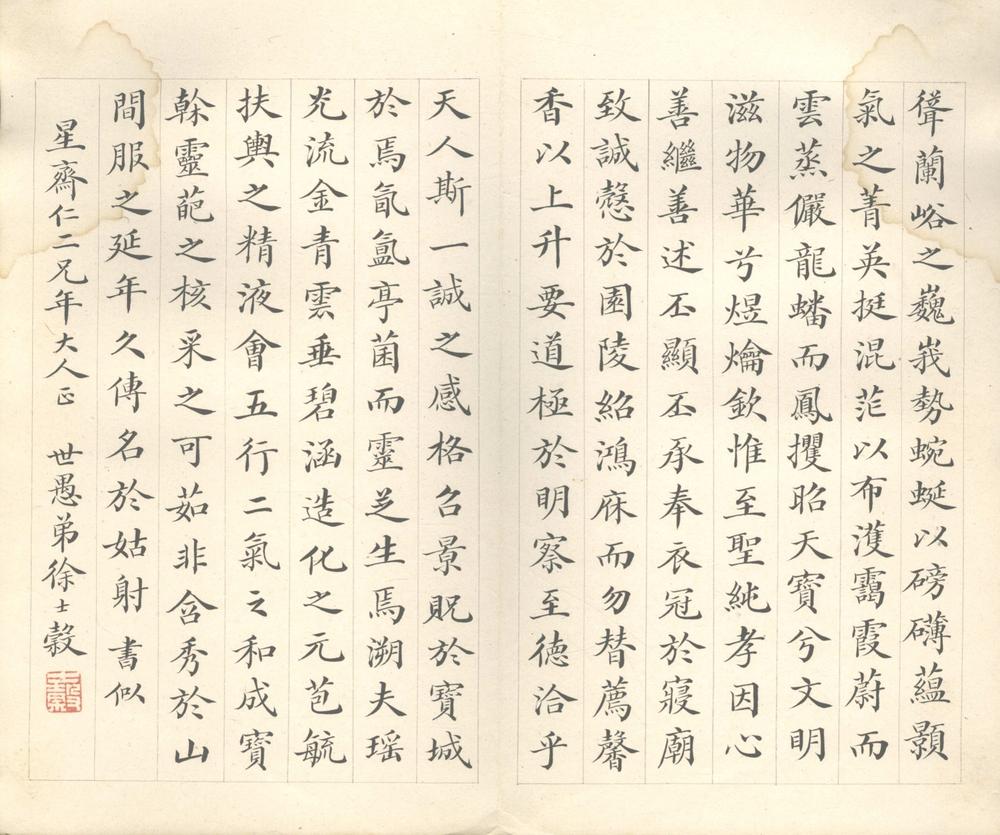 聳蘭峪之巍峩勢蜿蜒以磅礴蘊顥
氣之菁英挺混茫以布濩靄霞蔚而
雲蒸儼龍蟠而鳳攫昭天寶兮文明
滋物華兮煜爚欽惟至聖純孝因心
善繼善述丕顯丕承奉衣冠於寢廟
致誠慤於園陵紹鴻庥而勿替薦馨
香以上升要道極於明察至德洽乎
天人斯一誠之感格召景貺於寶城
於焉氤氳亭菌而靈芝生焉溯夫瑶
光流金青雲垂碧涵造化之元苞毓
扶輿之精液會五行二氣之和成寶
榦靈葩之核采之可茹非含秀於山
間服之延年久傳名於姑射 書似
星齋仁二兄年大人正 世愚弟徐士穀